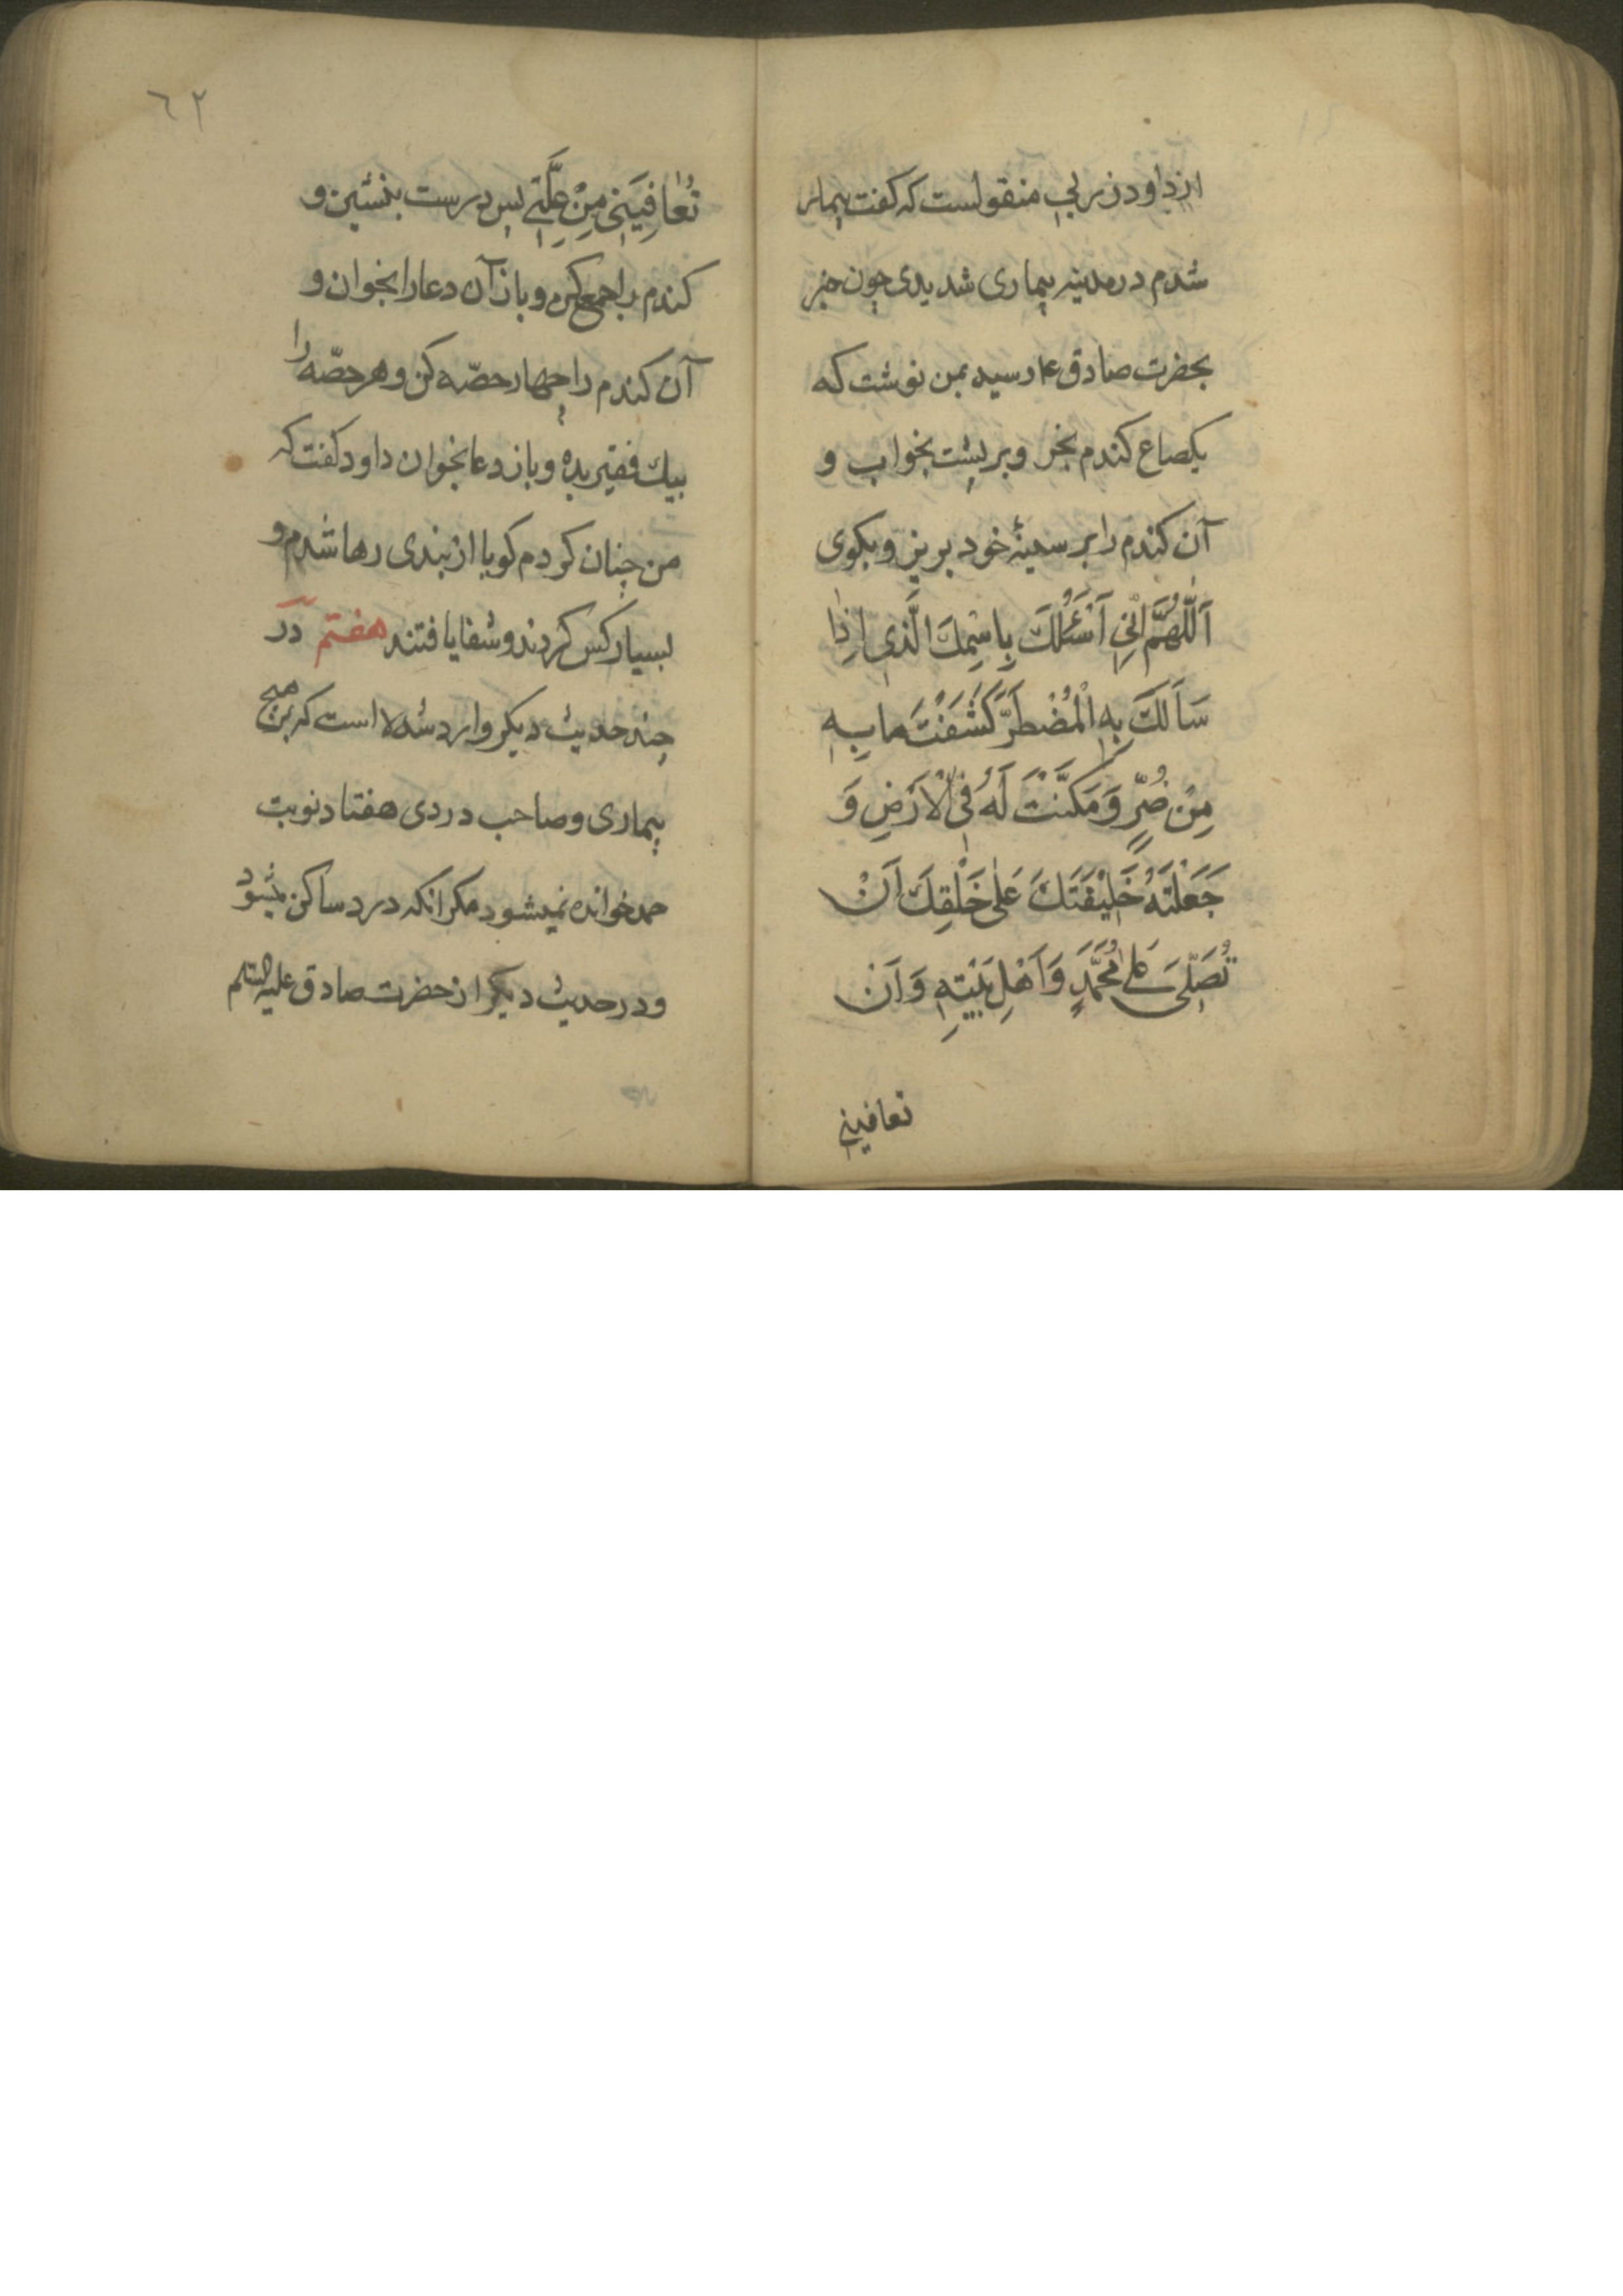 از داود زربی منقولست که کفت بیمار
شدم در مدینه بیماری شدیدی چون خبر
بحضرت صادق ع رسید بمن نوشت که
یکصاع کندم بخر و بر پشت بخواب و
آن کندم را بر سینۀ خود بریز و بکوی
اَللّٰهُمَّ اِنّی اَسْئَلُكَ بِاسْمِكَ الَّذی اِذٰا
سَأَلَكَ بِهِ الْمُضْطَرُّ كَشَفْتَ مابِهِ
مِنْ ضُرٍّ وَ مَكَّنْتَ لَهُ فِی الْاَرْضِ وَ
جَعَلْتَهُ خَلیْفَتَكَ عَلیٰ خَلْقِكَ اَنْ
تُصَلِّیَ عَلیٰ مُحَمَّدٍ وَ اَهْلِ بَیْتِهِ وَ اَنْ
تعافینی
٦٢
تُعٰافِیَنی مِنْ عِلَّتی پس درست بنشین و
کندم را جمع کن و باز آن دعا را بخوان و
آن کندم را چهار حصّه کن و هر حصّه را
بیك فقیر بده و باز دعا بخوان داود کفت که
من چنان کردم کویا از بندی رها شدم و
بسیار کس کردند و شفا یافتند هفتم در
چند حدیث دیکر وارد شده است که بر هیچ
بیماری و صاحب دردی هفتاد نوبت
حمد خوانده نمیشود مکر انکه درد ساکن میشود
و در حدیث دیکر از حضرت صادق علیه السلم